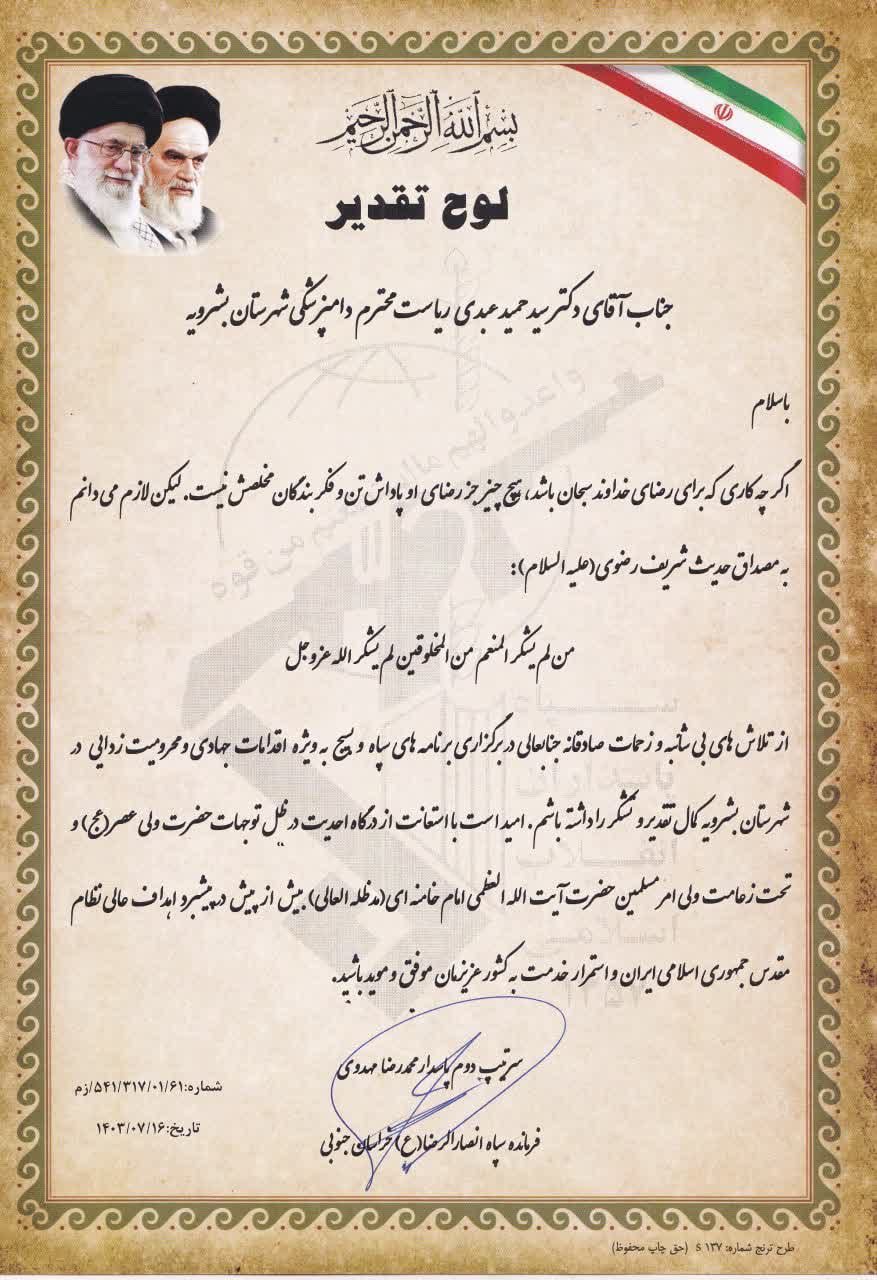 بسم الله الرحمن الرحیم
لوح تقدیر
جناب آقای دکتر سید حمید عبدی ریاست محترم دامپزشکی شهرستان بشرویه
باسلام
اگر چه کاری که برای رضای خداوند سبحان باشد، هیچ چیز جز رضای او پاداش تن و فکر بندگان مخلصش نیست. لیکن لازم می دانم
به مصداق حدیث شریف رضوی(علیه السلام):
من لم یشکر المنعم من المخلوقین لم یشکر الله عزوجل
از تلاش های بی شائبه و زحمات صادقانه جنابعالی در برگزاری برنامه های سپاه و بسیج به ویژه اقدامات جهادی و محرومیت زدایی در
شهرستان بشرویه کمال تقدیر و تشکر را داشته باشم. امید است با استعانت از درگاه احدیت در ظل توجهات حضرت ولی عصر(عج) و
تحت زعامت ولی امر مسلمین حضرت آیت الله العظمی امام خامنه ای(مدظله العالی) بیش از پیش در پیشبرد اهداف عالی نظام
مقدس جمهوری اسلامی ایران و استمرار خدمت به کشور عزیزمان موفق و موید باشید.
سرتیپ دوم پاسدار محمدرضا مهدوی
فرمانده سپاه انصارالرضا(ع) خراسان جنوبی
شماره:۵۴۱/۳۱۷/۰۱/۶۱/زم
تاریخ:۱۴۰۳/۰۷/۱۶
واعدوا لهم ما استطعتم من قوه
سپاه
پاسداران
انقلاب
اسلامی
۱۳۵۷
طرح ترنج شماره: S ۱۳۷ (حق چاپ محفوظ)